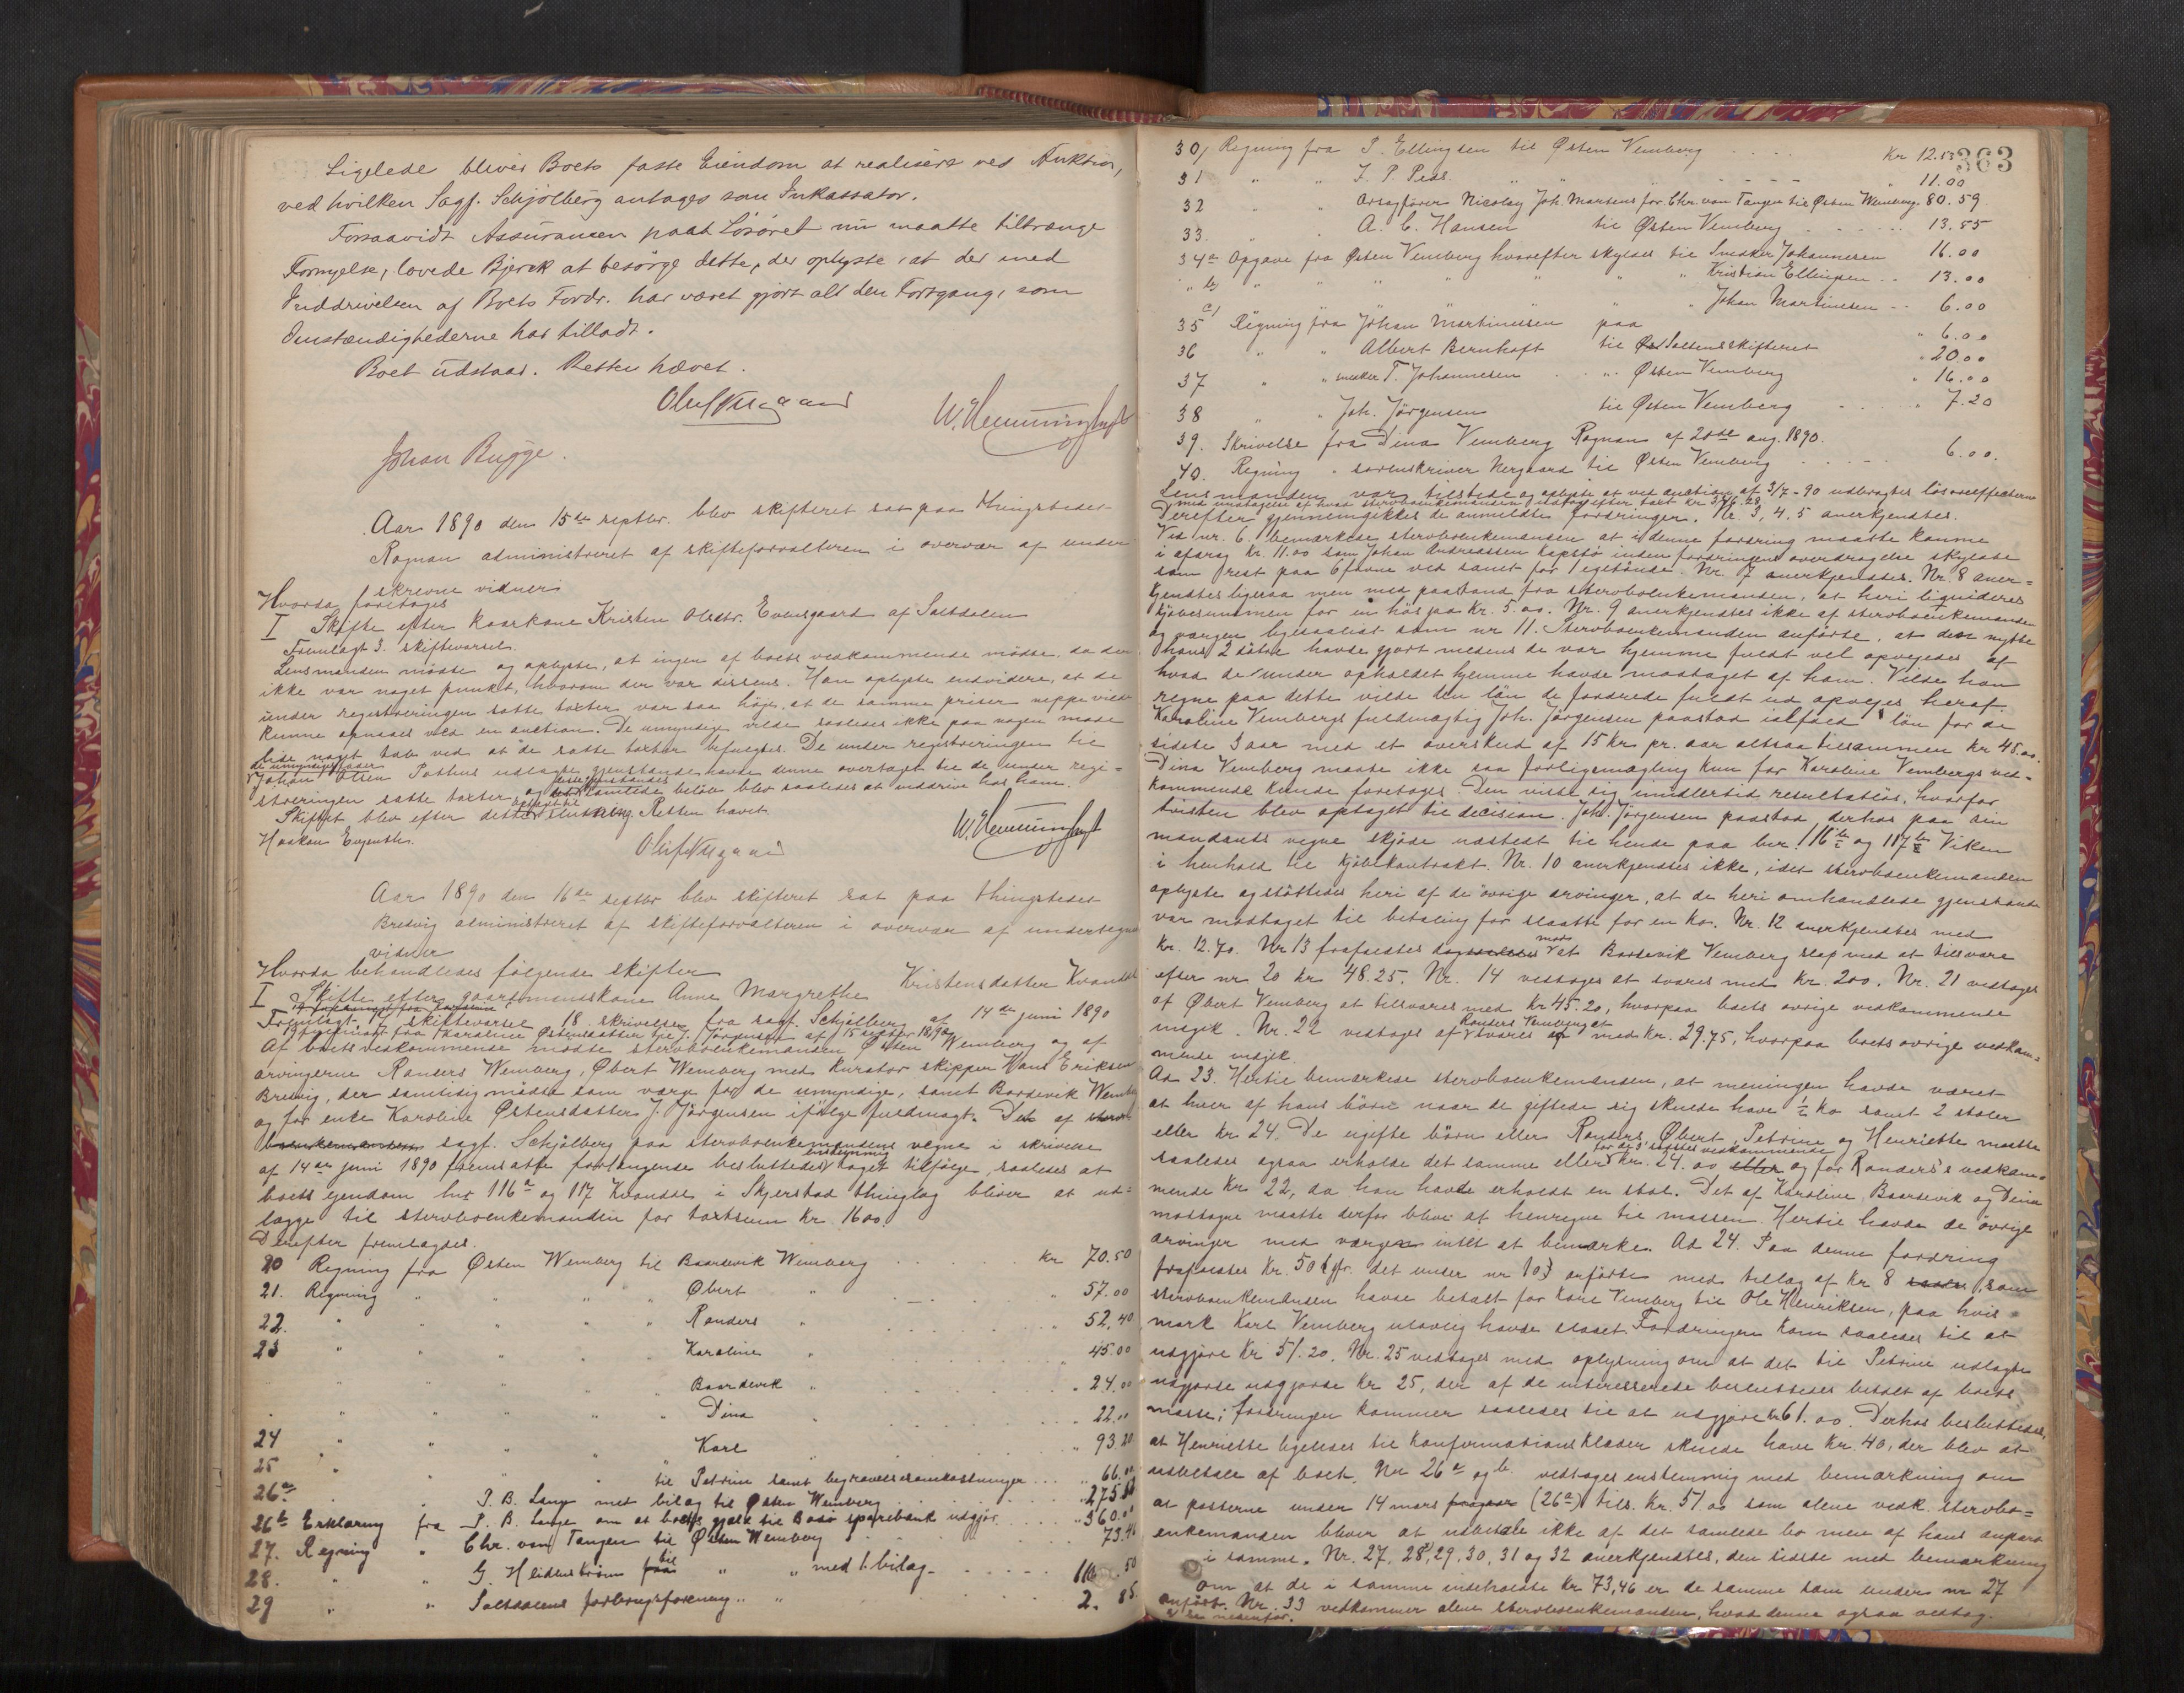 Ligelede bliver Boets faste Eiendom at realisere ved Auktion,
ved hvilken Sagf. Schjølberg antages som Inkassator.
Forsaavidt Assurancen paa Løsøret nu maatte tiltrænge
Fornyelse, lovede Bjerck at besørge dette, der oplyste, at der med
Inddrivelsen af Boets Fordr. har været gjort alt den Fortgang, som
Omstændighederne har tilladt.
Boet udstaar. Retten hævet.
Olufsgaard
W. Hemmingh
Johan Bugge.
Aar 1890 den 15de septbr. blev skifteret sat paa thingstedet
Rognan administreret af skifteforvalteren i overvær af under
skrevne vidner
Hvorda foretoges
I Skifte efter kaarkone Kristen Olsdtr. Evensgaard af Saltdalen
Fremlagt 3. skiftevarsel.
Lensmanden mødte og oplyste, at ingen af boets vedkommende mødte, da der
ikke var noget punkt, hvorom der var dissens. Han oplyste endvidere, at de
under registreringen satte taxter var saa høje, at de samme priser neppe vilde
kunne opnaaes ved en auction. De umyndige vilde saaledes ikke paa nogen maade
lide noget tab ved at de satte taxter befulgtes. De under registreringen til
de umyndiges fader
Johan Olsen Pothus udlagte gjenstande havde denne overtaget til de under regi-
streringen satte taxter, og disse gjenstandes samlede beløb blev saaledes at inddrive hos ham.
Skiftet blev efter dette optaget til slutning. Retten hævet.
Haakon Evjenth.
W. Hemmingh
Aar 1890 den 16de septbr blev skifteret sat paa thingstedet
Bredvig administreret af skifteforvalteren i overvær af undertegnede
vidner
Hvorda behandledes følgende skifter
I Skifte efter gaardmandskone Anne Margrethe Kristensdatter Kvandal
Fremlagt 17 skiftevarsel 18. skrivelse fra sagf. Schjølberg af 14de juni 1890
19 fuldmagt fra Karoline Østensdatter til J. Jørgensen af 15 septbr 1890
Af boets vedkommende mødte stervboenkemanden Østen Wemberg og af
arvingerne Randers Wemberg, Øbert Wemberg med Kurator skipper Hans Eriksen
Bredvig, der samtidig mødte som værge for de umyndige, samt Bardevik Wemberg
og for enke Karoline Østensdatter J. Jørgensen ifølge fuldmagt. Det af sterv-
boenkemanden sagf. Schjølberg paa stervboenkemandens vegne i skrivelse
af 14de juni 1890 fremsatte forlangende besluttedes enstemmig taget tilfølge, saaledes at
boets ejendom lnr 116a og 117 Kvandal i Skjerstad thinglag bliver at ud-
lægge til stervboenkemanden for taxtsum Kr. 1600
Derefter fremlagdes.
20 Regning fra Østen Wemberg til Baardevik Wemberg kr 70.50
21. Regning " " " Øbert " " 57.00
22. " " " " Randers " " 52.40
23 " " " " Karoline " " 45.00
" " " " Baardevik " " 24.00
" " " " Dina " 22.00
24 " " " " Karl " 93.20
25 " " " til Petrine samt begravelsesomkostninger " 66.00
26a. " " P. B. Lange med bilag til Østen Wemberg " 275.50
26b Erklæring fra P. B. Lange om at boets gjæld til Bodø sparebank udgjør " 360.00
27. Regning " Chr. von Tangen til Østen Wemberg 73.46
28. " " G. Heidenstrøm til " " med 1. bilag 116.50
29 " " Saltdalens forbrugsforening " " 2.85
363
30, Regning fra P. Ellingsen til Østen Vemberg Kr 12.53
31 " " J. P. Peds. " " " 11.00
32 " " Orsagfører Nicolay Joh. Martens for Chr. von Tangen til Østen Wemberg 80.59
33. " " A. C. Hansen til Østen Vemberg 13.55
34a Opgave fra Østen Vemberg hvorefter skyldes til Snedker Johannesen 16.00
" b) " " " " " " Kristian Ellingsen 13.00
c) " " Johan Martinusen 6.00
35 Regning fra Johan Martinussen paa " 6.00
36 " " Albert Bernhoft til Saltens skifteret " 20.00
37 " " snedker T. Johannesen " Østen Vemberg " 16.00
38 " Joh. Jørgensen til Østen Vemberg " 7.20
39. Skrivelse fra Dina Vemberg Rognan af 20de aug. 1890.
40. Regning " sorenskriver Nergaard til Østen Vemberg 6.00.
Lensmanden var tilstede og oplyste at ved auction af 3/7-90 udbragtes løsøreeffecterne
med undtagelse af hvad stervboenkemanden udtog efter taxt kr 376.28
Derefter gjennemgikkes de anmeldte fordringer. Nr. 3, 4, 5 anerkjendtes.
Ved nr. 6. bemærkede stervboenkemanden at i denne fordring maatte komme
i afdrag kr. 11.00 som Johan Andreassen Kapstø inden fordringens overdragelse skyldte
som rest paa 6 favne ved samt for 1 egetønde. Nr. 7 anerkjendtes. Nr. 8 aner-
kjendtes ligesaa men med paastand fra stervboenkemanden, at heri liquideres
kjøbesummen for en hus paa kr. 5.00. Nr. 9 anerkjendtes ikke af stervboenkemanden
og værgen ligesaalidt som nr 11. Stervboenkemanden anførte, at den nytte
hans 2 døtre havde gjort medens de var hjemme fuldt vel opvejedes af
hvad de under opholdet hjemme havde modtaget af ham. Vilde han
regne paa dette vilde den løn de fordrede fuldt ud opvejes heraf.
Karoline Vembergs fuldmægtig Joh. Jørgensen paastod ialfald løn for de
sidste 3 aar med et overskud af 15 kr pr. aar altsaa tilsammen kr 45.00.
Dina Vemberg mødte ikke saa forligsmægling kun for Karoline Vembergs ved-
kommende kunde foretages. Den viste sig imidlertid resultatløs, hvorfor
tvisten blev optaget til decision. Joh. Jørgensen paastod derhos paa sin
mandants vegne skjøde udstedt til hende paa bnr. 116 og 117 Viken
i henhold til kjøbekontrakt. Nr. 10 anerkjendtes ikke, idet stervboenkemanden
oplyste og støttedes heri af de øvrige arvinger, at de heri omhandlede gjenstande
var modtaget til betaling for slaatte for en ko. Nr. 12 anerkjendtes med
kr. 12.70. Nr 13 frafaldtes mod at Bardevik Vemberg slap med at tilsvare
efter nr 20 kr 48.25. Nr. 14 vedtoges at svares med kr. 200. Nr. 21 vedtoges
af Øbert Vemberg at tilsvares med kr 45.20, hvorpaa boets øvrige vedkommende
indgik. Nr. 22 vedtoges af Randers Vemberg at svares med kr. 29.75, hvorpaa boets øvrige vedkom-
mende indgik.
Ad 23. Hertil bemærkede stervboenkemanden, at meningen havde været
at hver af hans børn naar de giftede sig skulde have ½ ko samt 2 stoler
eller kr 24. De ugifte børn eller Randers, Øbert, Petrine og Henriette maatte
saaledes ogsaa erholde det samme eller for de 3 sidstes vedkommende kr. 24.00 og for Randers's vedkom-
mende kr 22, da han havde erholdt en stol. Det af Karoline, Baardevik og Dina
modtagne maatte derfor blive at henregne til massen. Hertil havde de øvrige
arvinger med værgen intet at bemærke. Ad 24. Paa denne fordring
frafaldtes kr. 50 (jfr. det under nr 10 anførte med tillæg af kr. 8 som
stervboenkemanden havde betalt for Karl Vemberg til Ole Henriksen, paa hvis
mark Karl Vemberg ulovlig havde slaaet. Fordringen kom saaledes til at
udgjøre kr 51.20. Nr. 25 vedtoges med oplysning om at det til Petrine udlagte
udgjorde udgjorde kr 25, der af de interesserede besluttedes betalt af boets
masse; fordringen kommer saaledes til at udgjøre kr 61.00. Derhos besluttedes,
at Henriette ligeledes til konfirmationsklæder skulde have kr. 40, der blev at
udbetale af boet. Nr 26a og b. vedtoges enstemmig med bemærkning om
at posterne under 14 mars (26a) tils. kr. 51.00 som alene vedk. stervbo-
enkemanden bliver at udbetale ikke af det samlede bo men af hans anpart
i samme. Nr. 27, 28, 29, 30, 31 og 32 anerkjendtes, den sidste med bemærkning
om at de i samme indeholdte kr 73,46 er de samme som under nr 27
anført. Nr. 33 vedkommer alene stervboenkemanden, hvad denne ogsaa vedtog.
se nedenfor.